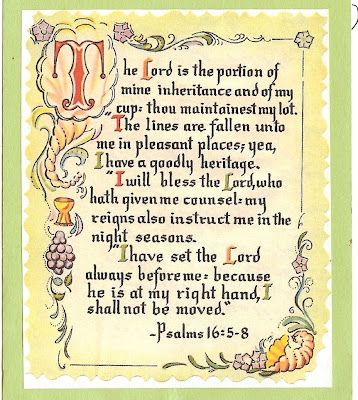 The Lord is the portion of
mine inheritance and of my
cup: thou maintainest my lot.
"The lines are fallen unto
me in pleasant places; yea,
I have a goodly heritage.
"I will bless the Lord, who
hath given me counsel: my
reigns also instruct me in the
night seasons.
"I have set the Lord
always before me: because
he is at my right hand, I
shall not be moved."
-Psalms 16:5-8